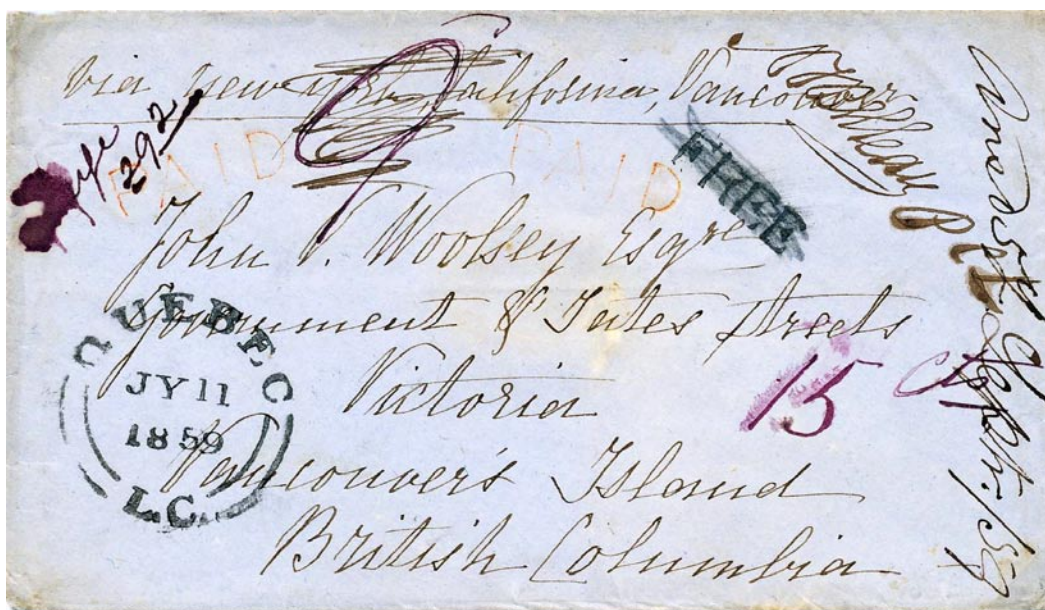 via New York, California, Vancouver
292
PAID PAID
FREE
John V. Woolsey Esqre
Government & Yates Streets
Victoria
15
Vancouver's Island
British Columbia
QUEBEC
JY 11
1859
L.C.
Sept./59